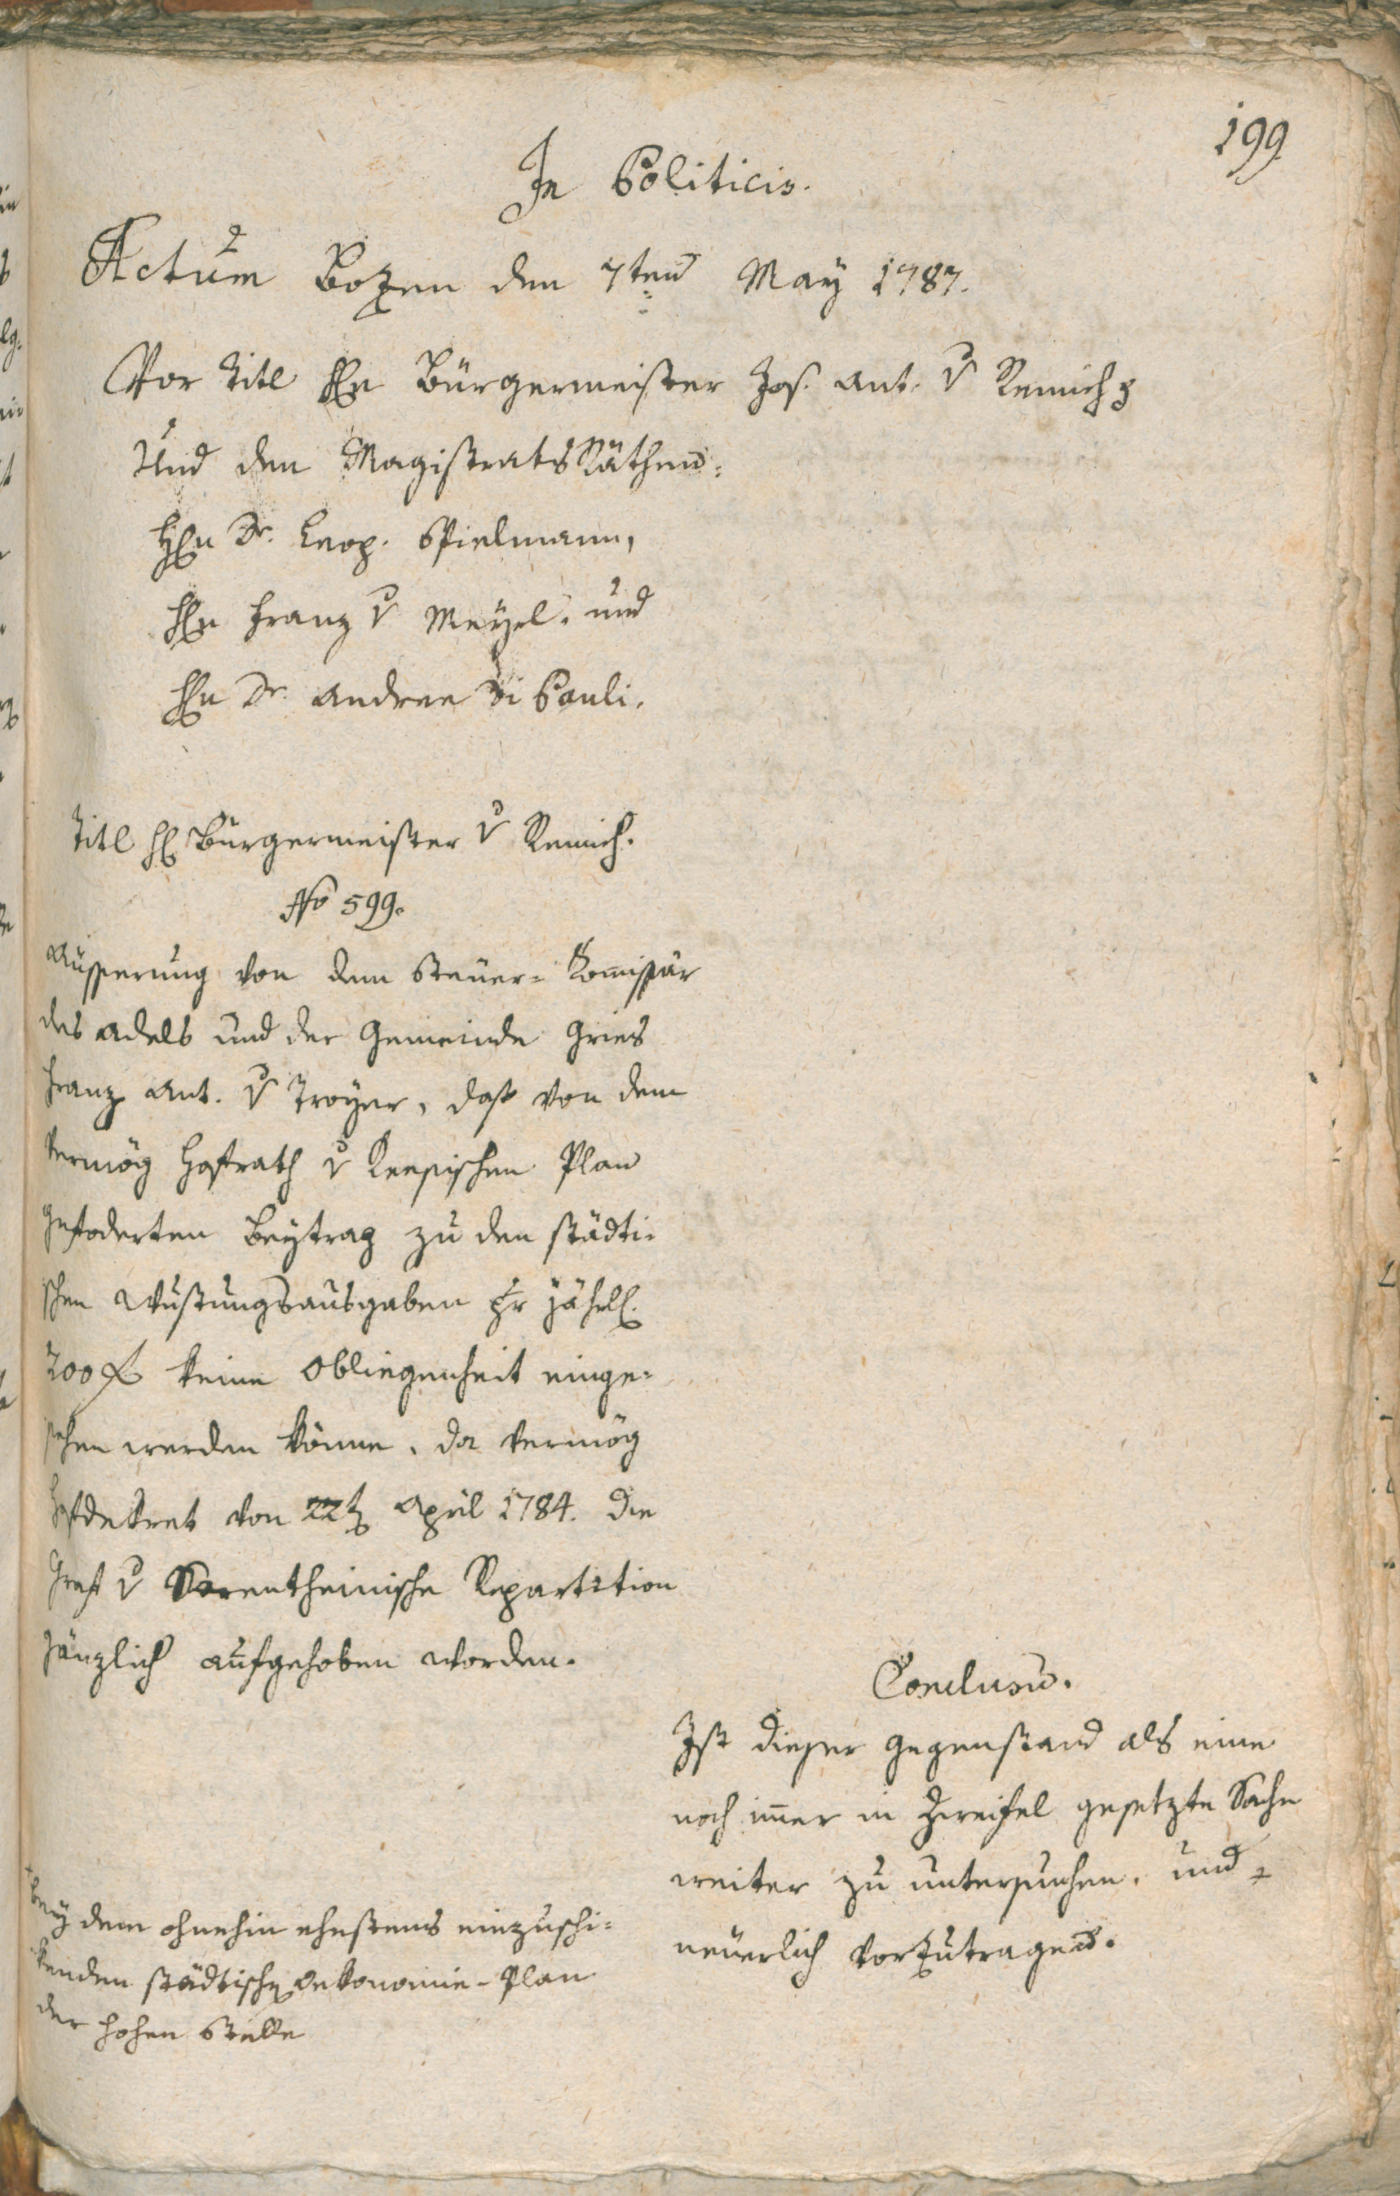 199
In Politicis.
Actum Bozen den 7ten May 1787.
Vor Titl Hn Bürgermeister Jos. Ant. v Remich
Und den Magistrats Räthen:
Hn Dr. Leop. Spielmann,
Hn Franz v Mayrl. und
Hn Dr. Andree Di Pauli.
Titl H Bürgermeister v Remich.
No 599.
Äusserung von dem Steuer-Komissär
des Adels und der Gemeinde Gries
Franz Ant. v Troyer, daß von dem
vermög Hofrath v Keesischen Plan
gefoderten Beytrag zu den städti-
schen Wustungsausgaben pr jährl.
200 f keine Obliegenheit einge-
sehen werden könne, da vermög
Hofdekret von 22t April 1784. die
Graf v Sarentheinische Repartition
gänzlich aufgehoben worden.
Conclusum.
Ist dieser Gegenstand als eine
noch immer in Zweifel gesetzte Sache
weiter zu untersuchen, und
neuerlich vorzutragen.
bey dem ohnehin ehestens einzuschi-
kenden städtischen Oekonomie-Plan
der hohen Stelle